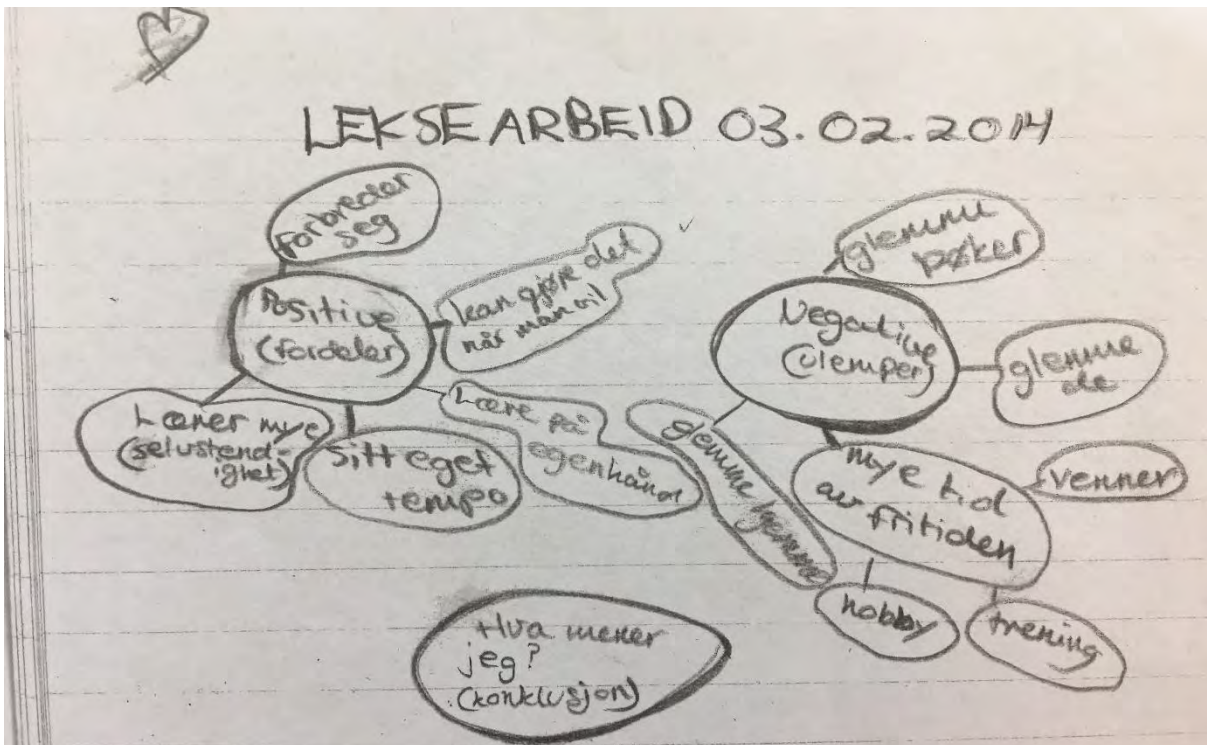 LEKSEARBEID 03.02.2014
forbreder
seg
Positive
(fordeler)
kan gjøre det
når man vil
Lærer mye
(selvstend-
ighet)
Sitt eget
tempo
Lære på
egenhånd
Negative
(ulemper)
glemme
pøker
glemme
de
glemme hjemme
mye tid
av fritiden
venner
hobby
trening
Hva mener
jeg?
(konklusjon)